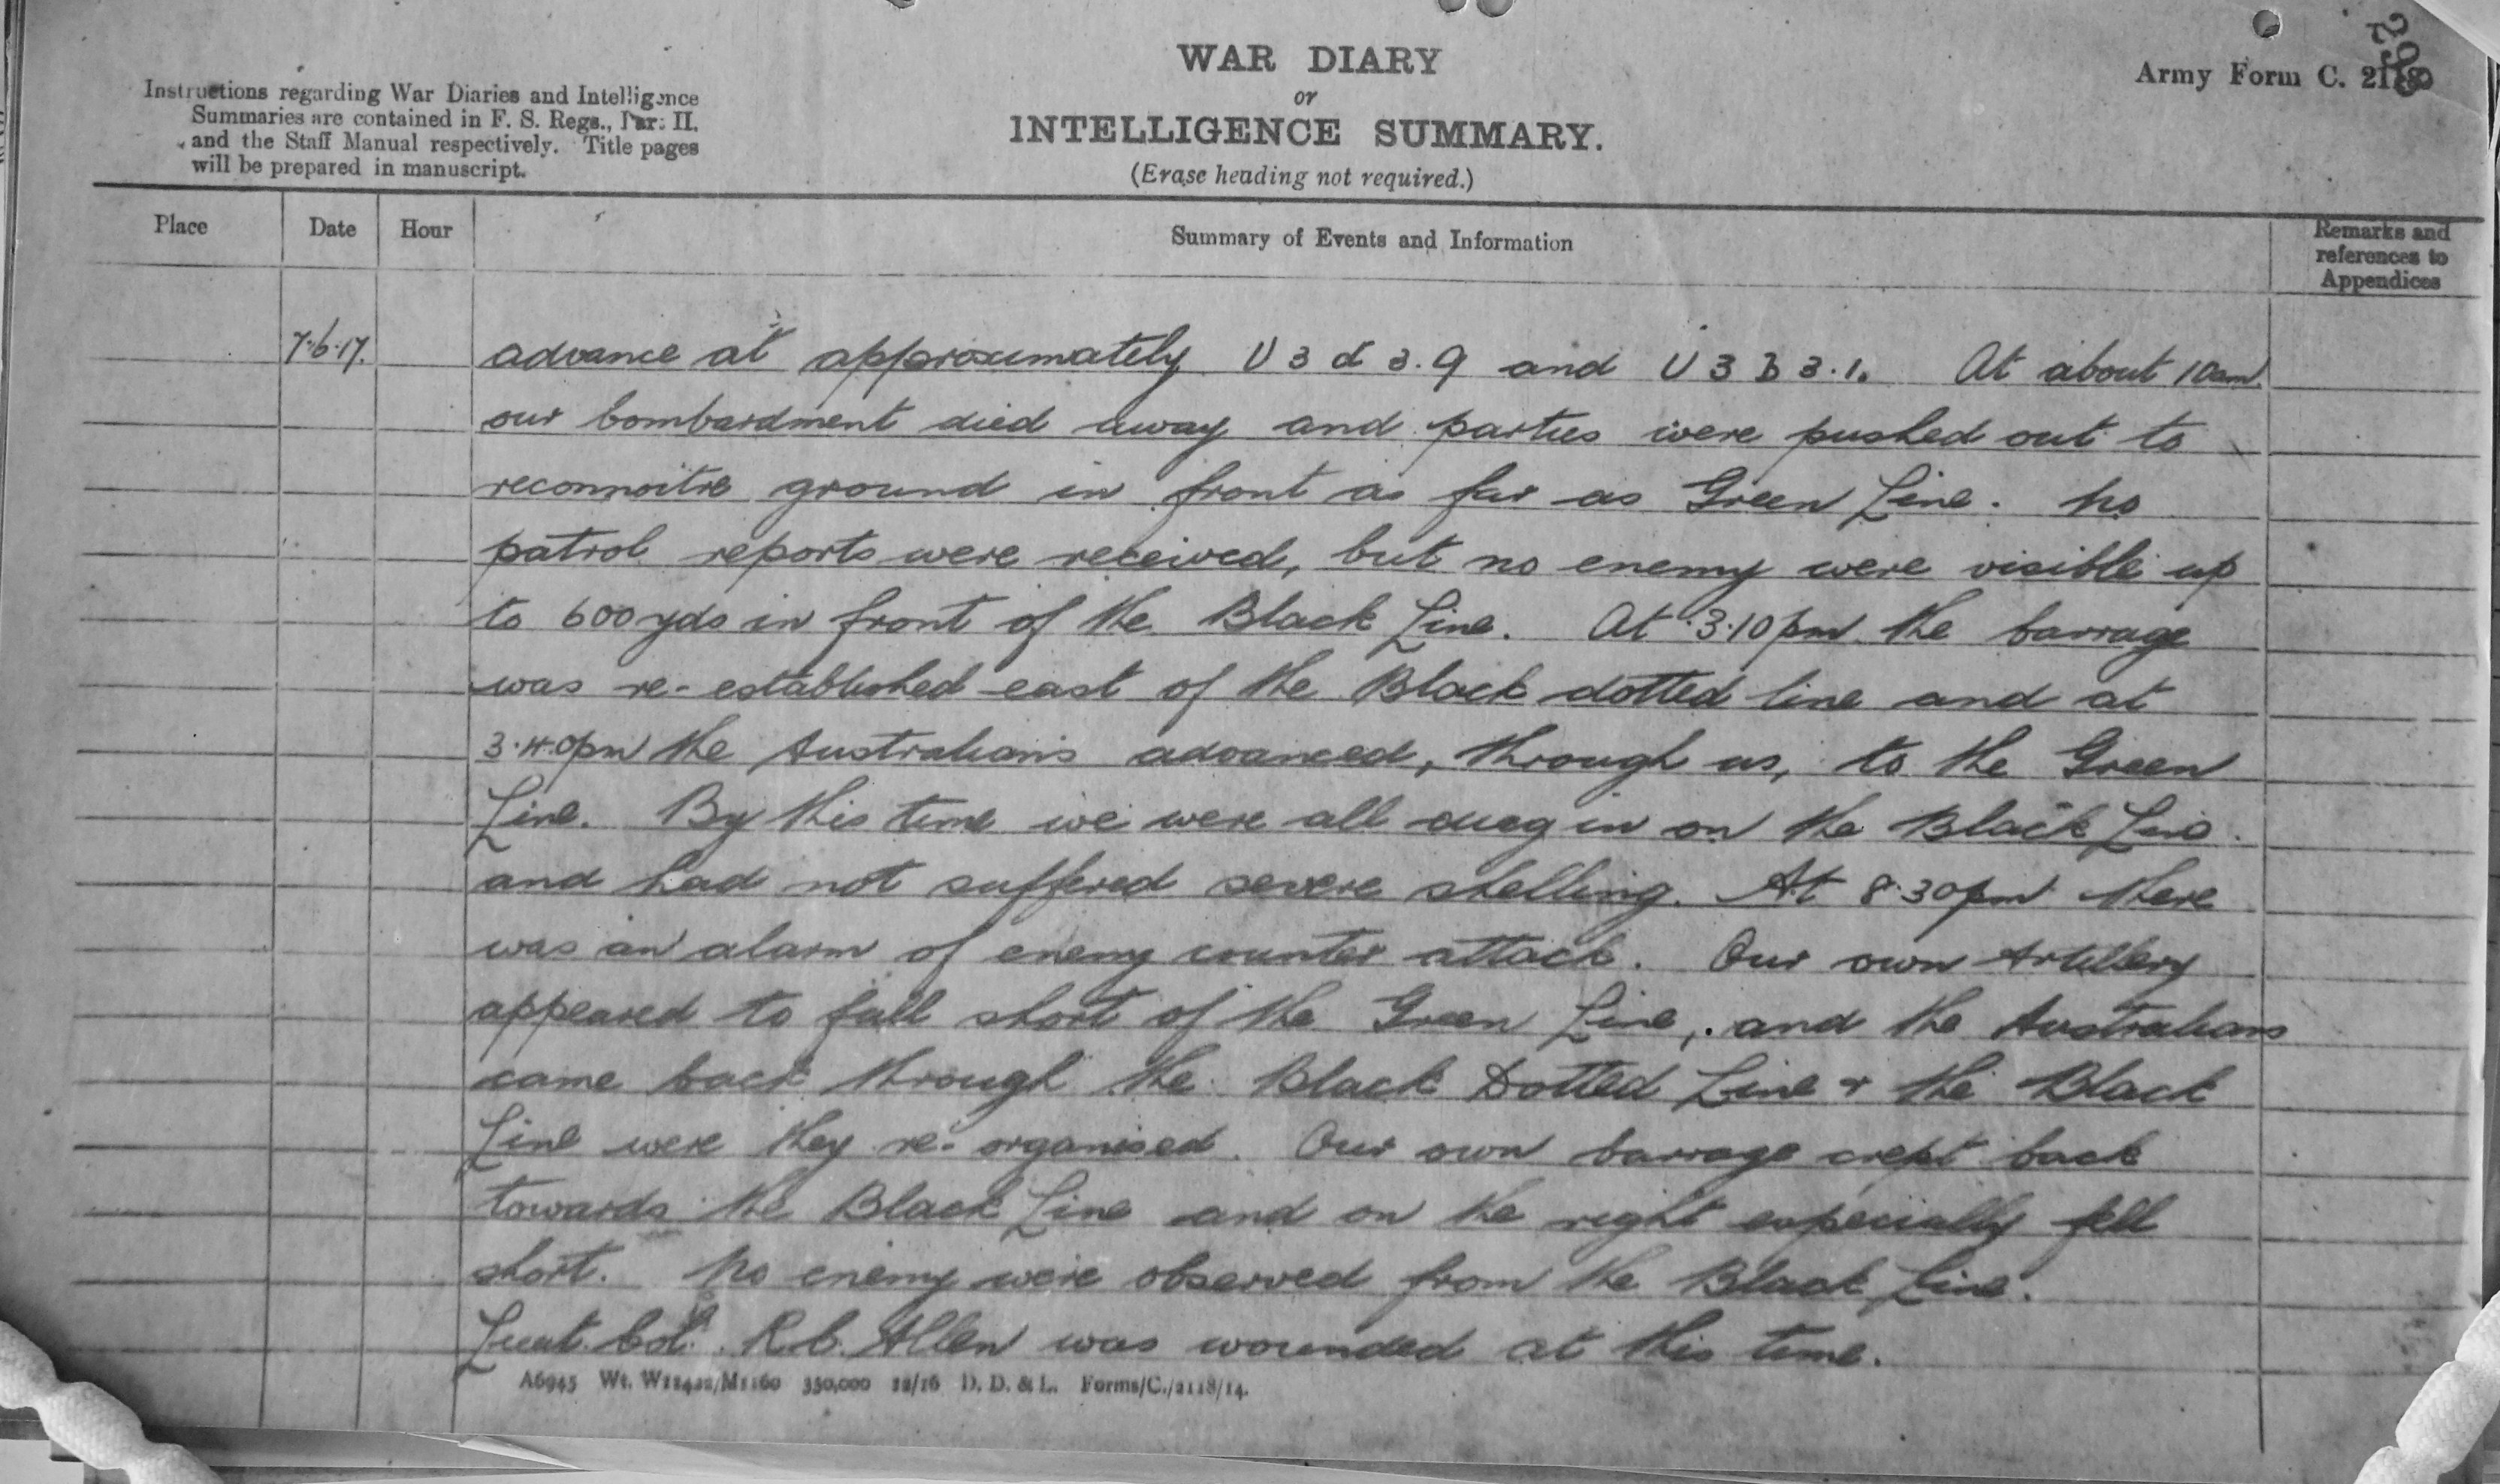 298
WAR DIARY
or
INTELLIGENCE SUMMARY.
(Erase heading not required.)
Army Form C. 2118
Instructions regarding War Diaries and Intelligence
Summaries are contained in F. S. Regs., Part II.
and the Staff Manual respectively. Title pages
will be prepared in manuscript.
Place Date Hour Summary of Events and Information Remarks and
references to
Appendices
7.6.17. advance at approximately U 3 d 3.9 and U 3 B 3.1. At about 10am
our bombardment died away and parties were pushed out to
reconnoitre ground in front as far as Green Line. No
patrol reports were received, but no enemy were visible up
to 600yds in front of the Black Line. At 3.10pm the barrage
was re-established east of the Black dotted line and at
3.40pm the Australians advanced, through us, to the Green
Line. By this time we were all dug in on the Black Line
and had not suffered severe shelling. At 8.30pm there
was an alarm of enemy counter attack. Our own Artillery
appeared to fall short of the Green Line, and the Australians
came back through the Black Dotted Line & the Black
Line were they re-organised. Our own barrage crept back
towards the Black Line and on the right especially fell
short. No enemy were observed from the Black Line.
Lieut. Col. R.C. Allen was wounded at this time.
A6945 Wt. 350,000 12/16 D. D. & L. Forms/C./2118/14.